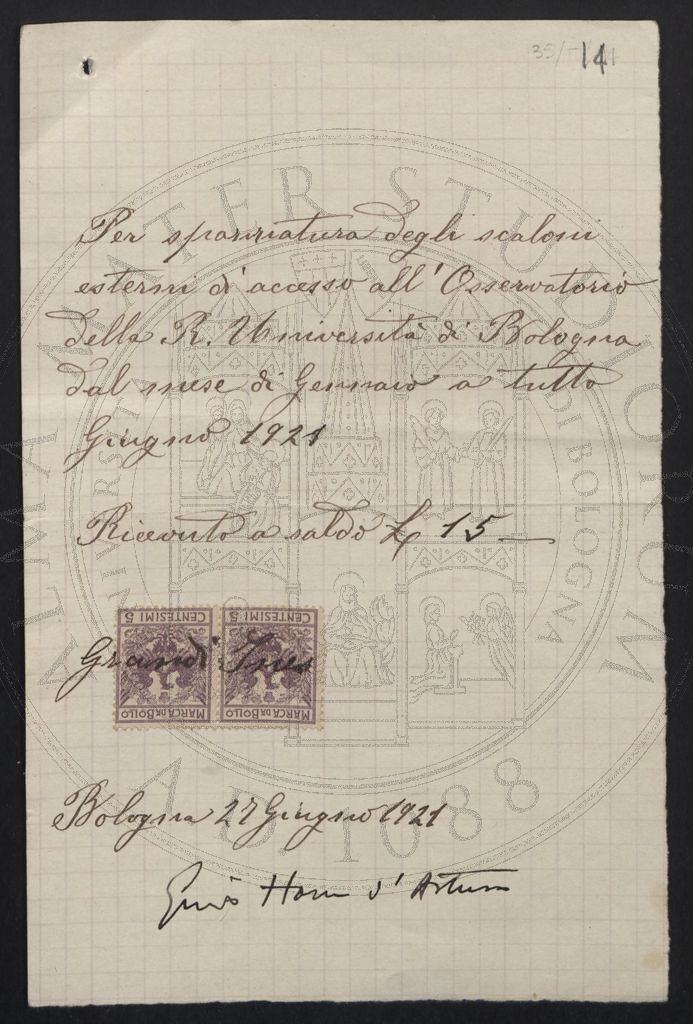 14
Per spazzatura degli scaloni
esterni d'accesso all'Osservatorio
della R. Università di Bologna
dal mese di Gennaio a tutto
Giugno 1921
Ricevuto a saldo £ 15 —
CENTESIMI 5 CENTESIMI 5
Grandi Ines
MARCA DA BOLLO MARCA DA BOLLO
Bologna 27 Giugno 1921
Guido Horn d'Arturo
ALMA MATER STUDIORUM
UNIVERSITÀ DI BOLOGNA
A.D. 1088